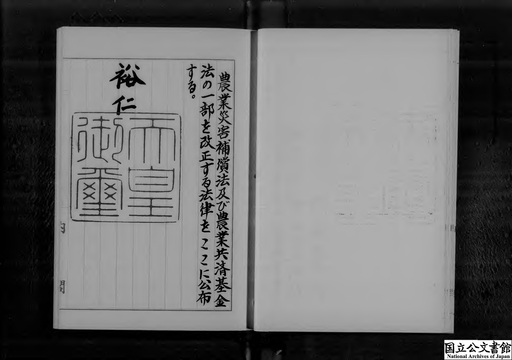 農業災害補償法及び農業共済基金
法の一部を改正する法律をここに公布
する。
裕仁
天皇
御璽
国立公文書館
National Archives of Japan